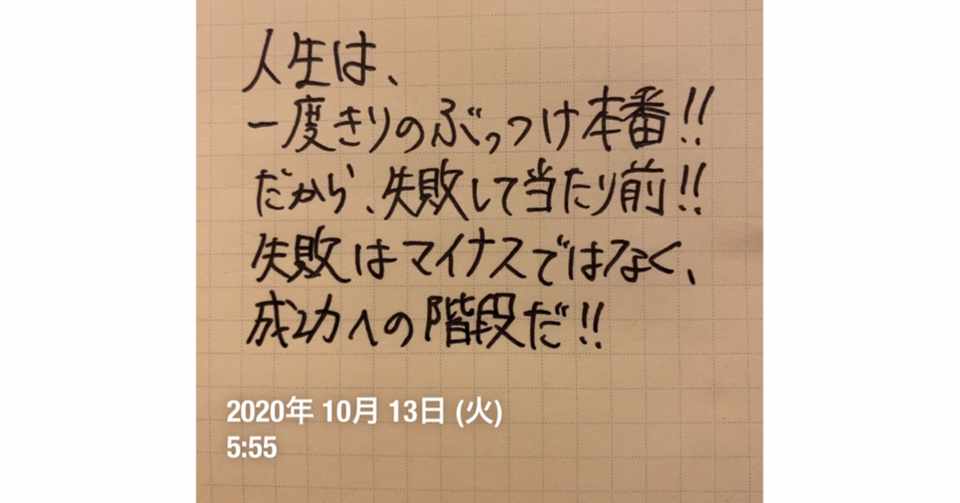 人生は、
一度きりのぶっつけ本番!!
だから、失敗して当たり前!!
失敗はマイナスではなく、
成功への階段だ!!
2020年 10月 13日 (火)
5:55